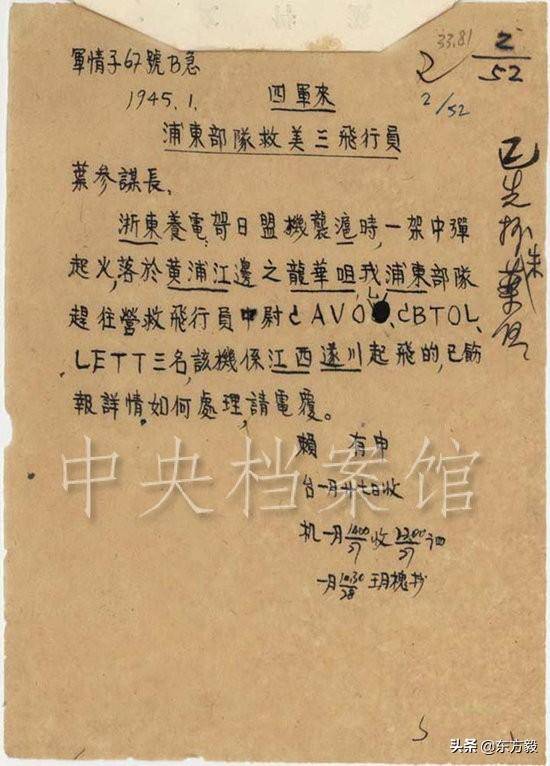 33.81
2
2/52
2/52
軍情子67號B急
1945.1.
四軍來
浦東部隊救美三飛行員
葉參謀長、
浙東養電哿日盟機襲滬時,一架中彈
起火,落於黄浦江邊之龍華咀,我浦東部隊
趕往營救飛行員中尉CAVO、CBTOL、
LETT三名,該機係江西遂川起飛的,已飭
報詳情,如何處理,請電覆。
賴 有申
台一月廿七日收
机一月1400/27收2200/27
一月10.30/28 抄
已先抄
中央档案馆
头条@东方毅